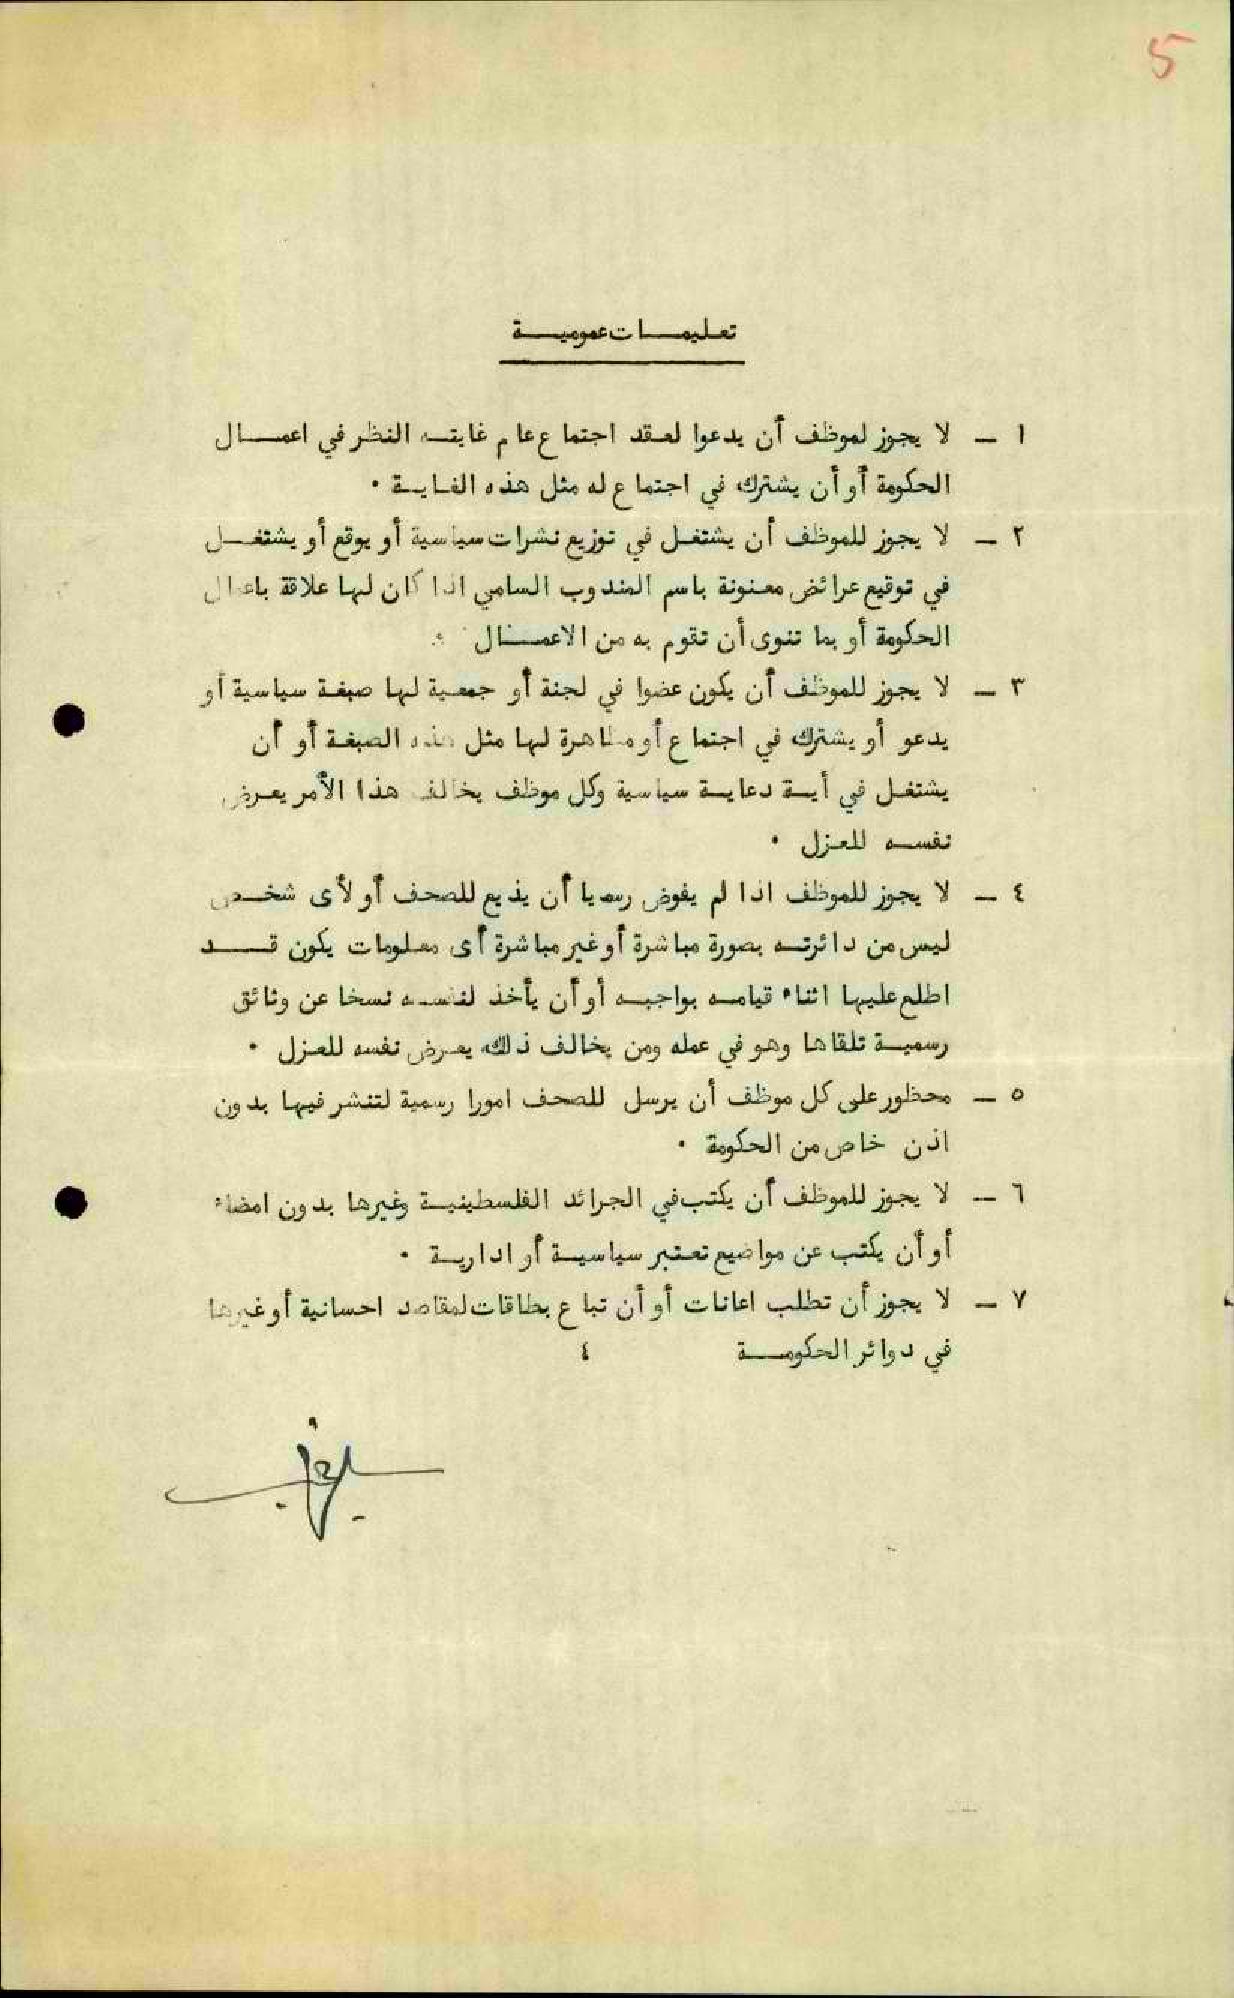 5
تعليمات عمومية
١ - لا يجوز لموظف أن يدعوا لعقد اجتماع عام غايته النظر في اعمال
الحكومة أو أن يشترك في اجتماع له مثل هذه الغاية ٠
٢ - لا يجوز للموظف أن يشتغل في توزيع نشرات سياسية أو يوقع أو يشتغل
في توقيع عرائض معنونة باسم المندوب السامي اذا كان لها علاقة باعمال
الحكومة أو بما تنوى أن تقوم به من الاعمال ٠
٣ - لا يجوز للموظف أن يكون عضوا في لجنة أو جمعية لها صبغة سياسية أو
يدعو أو يشترك في اجتماع أو مظاهرة لها مثل هذه الصبغة أو أن
يشتغل في أية دعاية سياسية وكل موظف يخالف هذا الأمر يعرض
نفسه للعزل ٠
٤ - لا يجوز للموظف اذا لم يفوض رسميا أن يذيع للصحف أو لأى شخص
ليس من دائرته بصورة مباشرة أو غير مباشرة أى معلومات يكون قد
اطلع عليها اثناء قيامه بواجبه أو أن يأخذ لنفسه نسخا عن وثائق
رسمية تلقاها وهو في عمله ومن يخالف ذلك يعرض نفسه للعزل ٠
٥ - محظور على كل موظف أن يرسل للصحف امورا رسمية لتنشر فيها بدون
اذن خاص من الحكومة ٠
٦ - لا يجوز للموظف أن يكتب في الجرائد الفلسطينية وغيرها بدون امضاء
أو أن يكتب عن مواضيع تعتبر سياسية أو ادارية ٠
٧ - لا يجوز أن تطلب اعانات أو أن تباع بطاقات لمقاصد احسانية أو غيرها
في دوائر الحكومة ٤